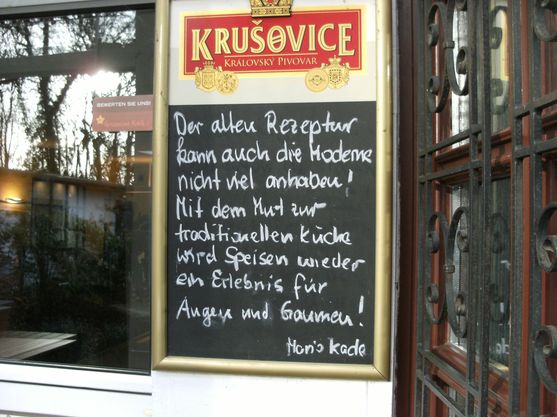 KRUŠOVICE
KRÁLOVSKÝ PIVOVAR
BEWERTEN SIE UNS!
Der alten Rezeptur
kann auch die Moderne
nicht viel anhaben!
Mit dem Mut zur
traditionellen Küche
wird Speisen wieder
ein Erlebnis für
Augen und Gaumen!